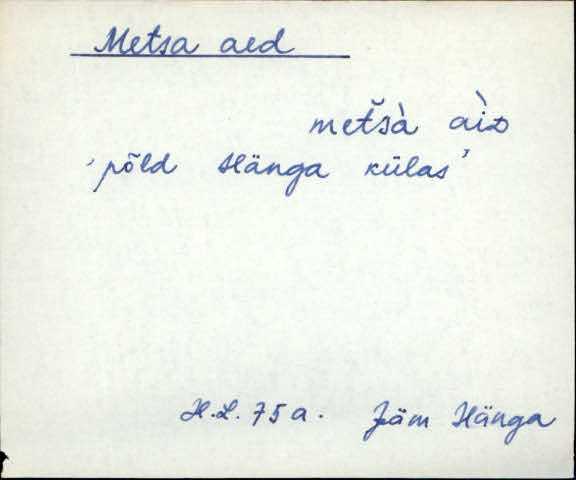 Metsa aed
metšà àiᴅ
'põld Hänga külas'
H.L. 75 a. Jäm Hänga